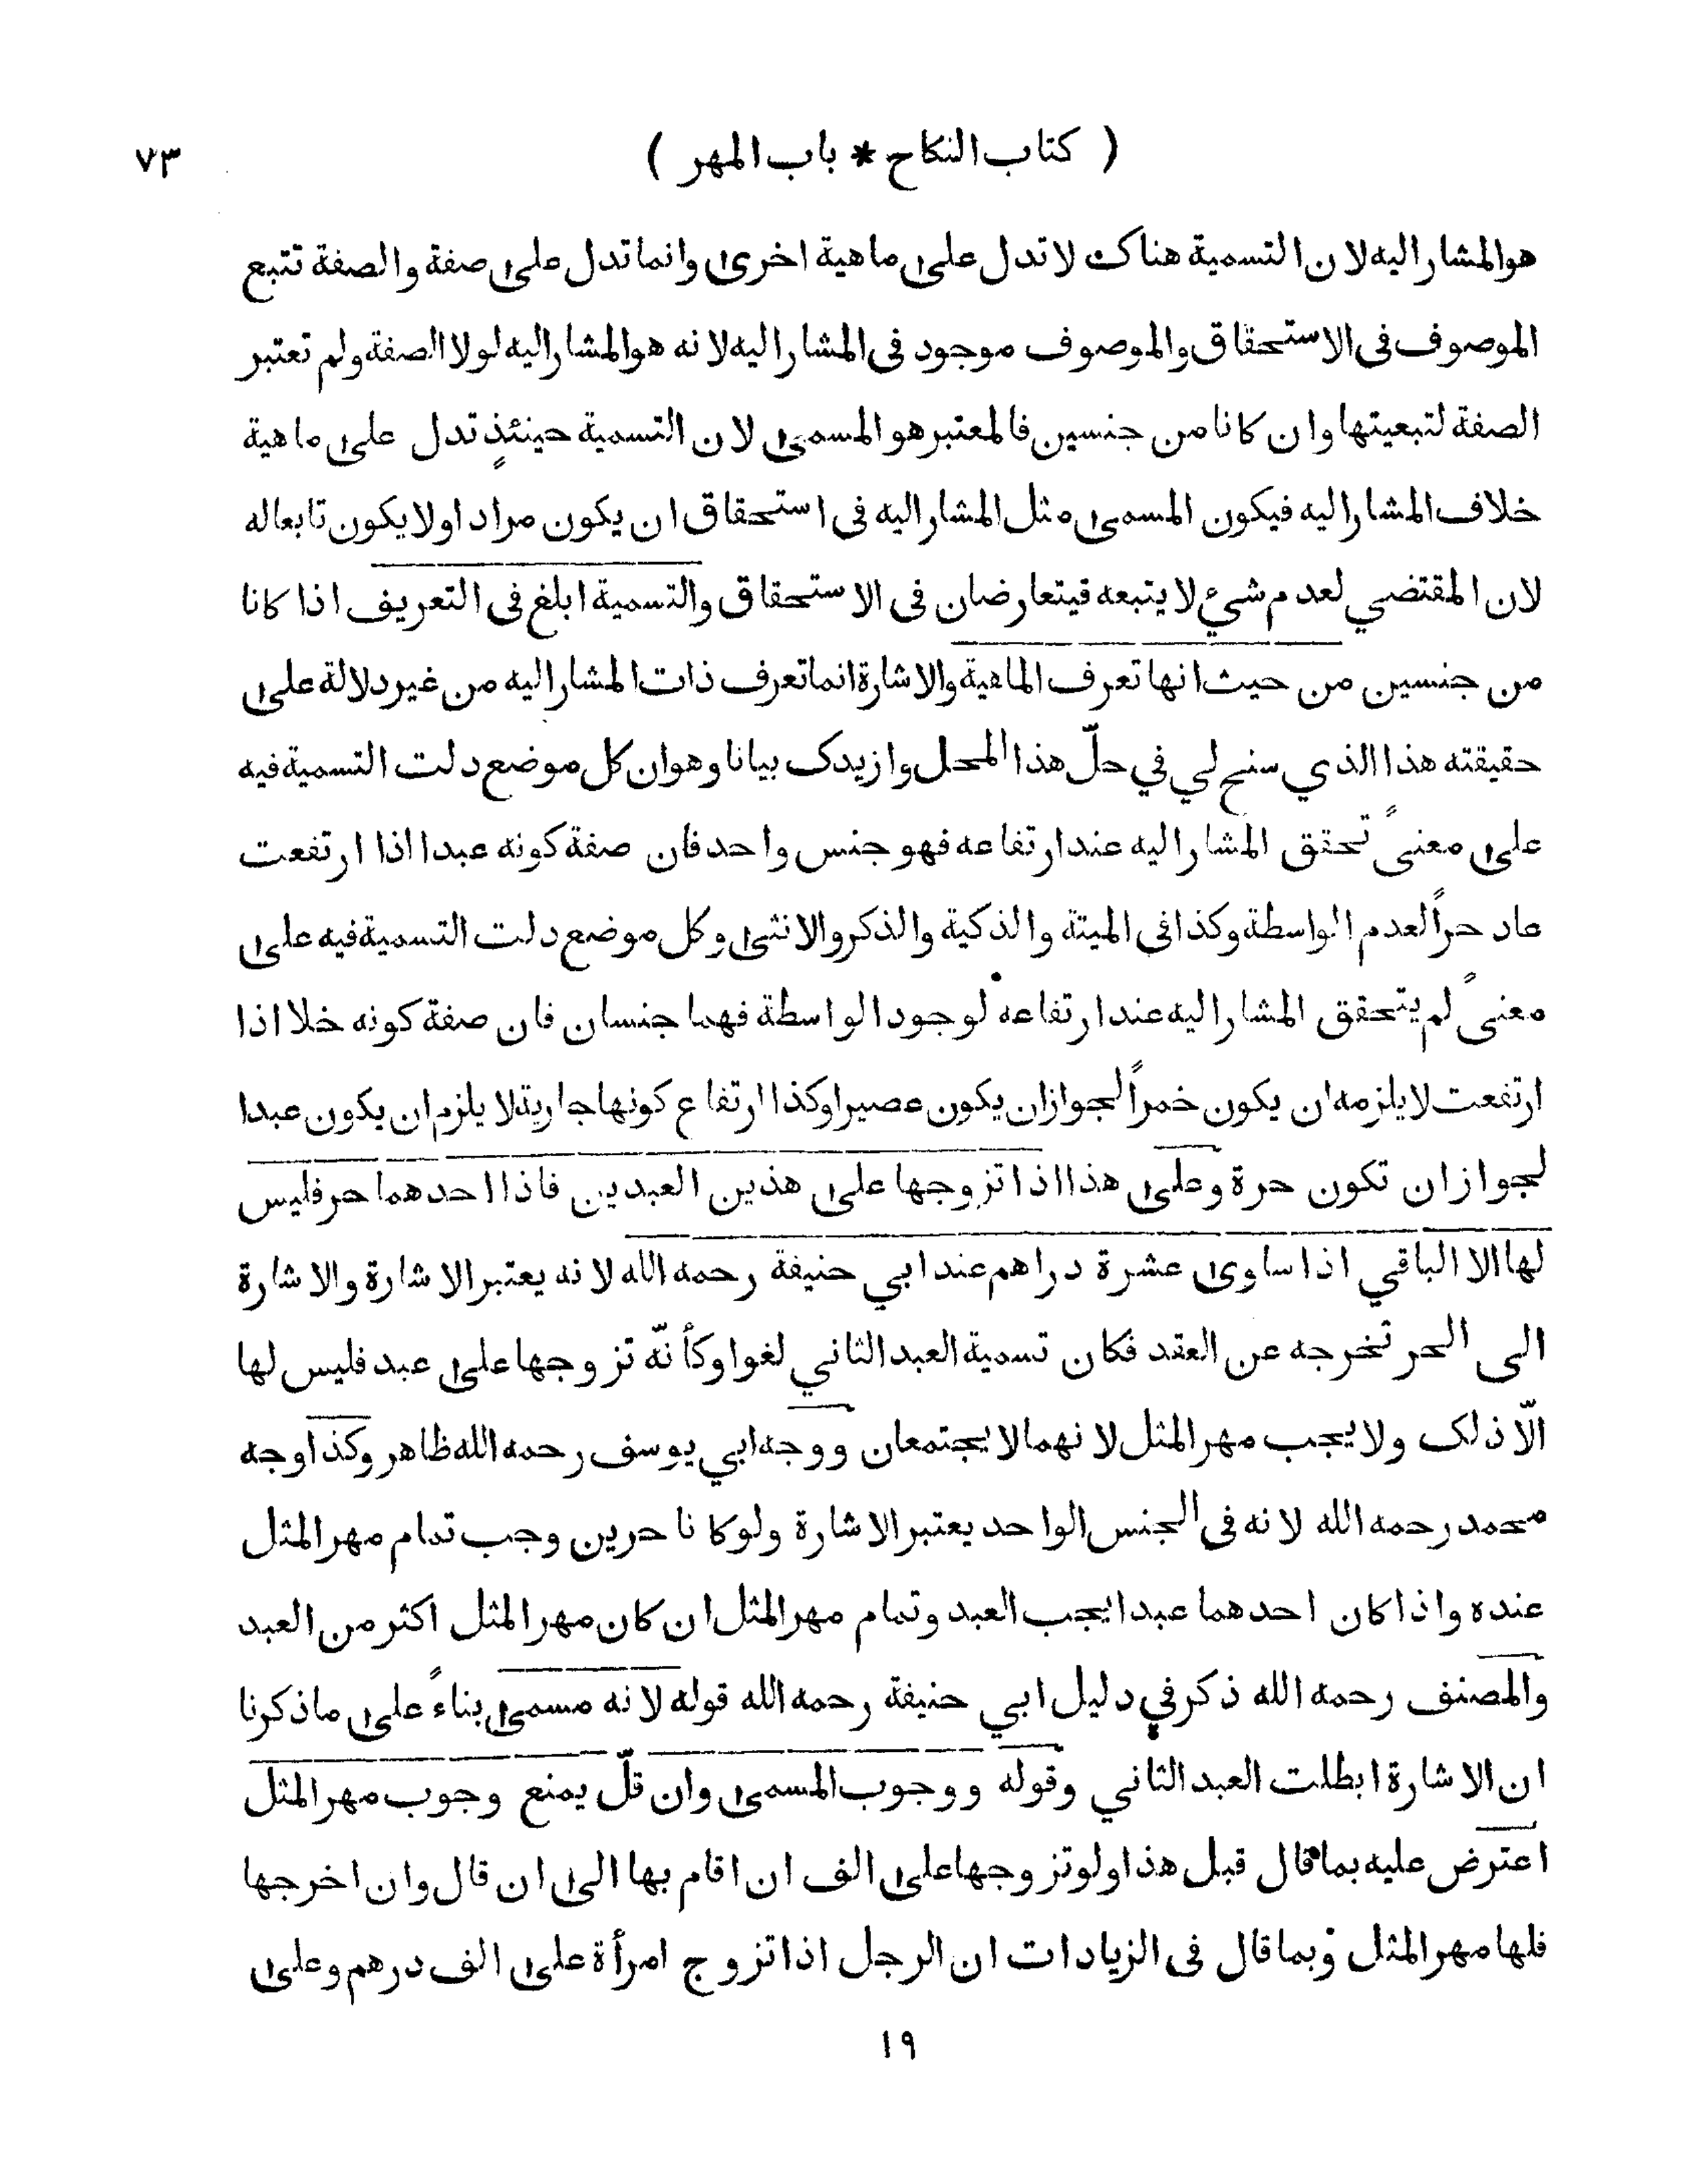 ( كتاب النكاح * باب المهر ) ٧٣
هوالمشار اليه لان التسمية هناك لا تدل على ماهية اخرى وانما تدل على صفة والصفة تتبع
الموصوف فى الاستحقاق والموصوف موجود فى المشار اليه لانه هوالمشار اليه لولا الصفة ولم تعتبر
الصفة لتبعيتها وان كانا من جنسين فالمعتبر هو المسمى لان التسمية حينئذٍ تدل على ماهية
خلاف المشار اليه فيكون المسمى مثل المشار اليه فى استحقاق ان يكون مرادا ولا يكون تابعا له
لان المقتضي لعدم شيء لا يتبعه فيتعارضان فى الاستحقاق والتسمية ابلغ فى التعريف اذا كانا
من جنسين من حيث انها تعرف الماهية والاشارة انما تعرف ذات المشار اليه من غير دلالة على
حقيقته هذا الذي سنح لي في حلّ هذا المحل وازيدك بيانا وهو ان كل موضع دلت التسمية فيه
على معنىً تحقق المشار اليه عند ارتفاعه فهو جنس واحد فان صفة كونه عبدا اذا ارتفعت
عاد حراً لعدم الواسطة وكذا فى الميتة والذكية والذكر والانثى وكل موضع دلت التسمية فيه على
معنىً لم يتحقق المشار اليه عند ارتفاعه لوجود الواسطة فهما جنسان فان صفة كونه خلا اذا
ارتفعت لا يلزمه ان يكون خمراً لجواز ان يكون عصيرا وكذا ارتفاع كونها جارية لا يلزم ان يكون عبدا
لجواز ان تكون حرة وعلى هذا اذا تزوجها على هذين العبدين فاذا احدهما حر فليس
لها الا الباقي اذا ساوى عشرة دراهم عند ابي حنيفة رحمه الله لانه يعتبر الاشارة والاشارة
الى الحر تخرجه عن العقد فكان تسمية العبد الثاني لغوا وكأنّه تزوجها على عبد فليس لها
الّا ذلك ولا يجب مهر المثل لانهما لا يجتمعان ووجه ابي يوسف رحمه الله ظاهر وكذا وجه
محمد رحمه الله لانه فى الجنس الواحد يعتبر الاشارة ولو كانا حرين وجب تمام مهر المثل
عنده واذا كان احدهما عبدا يجب العبد وتمام مهر المثل ان كان مهر المثل اكثر من العبد
والمصنف رحمه الله ذكر في دليل ابي حنيفة رحمه الله قوله لانه مسمى بناءً على ما ذكرنا
ان الاشارة ابطلت العبد الثاني وقوله ووجوب المسمى وان قلّ يمنع وجوب مهر المثل
اعترض عليه بما قال قبل هذا ولو تزوجها على الف ان اقام بها الى ان قال وان اخرجها
فلها مهر المثل وبما قال فى الزيادات ان الرجل اذا تزوج امرأة على الف درهم وعلى
١٩